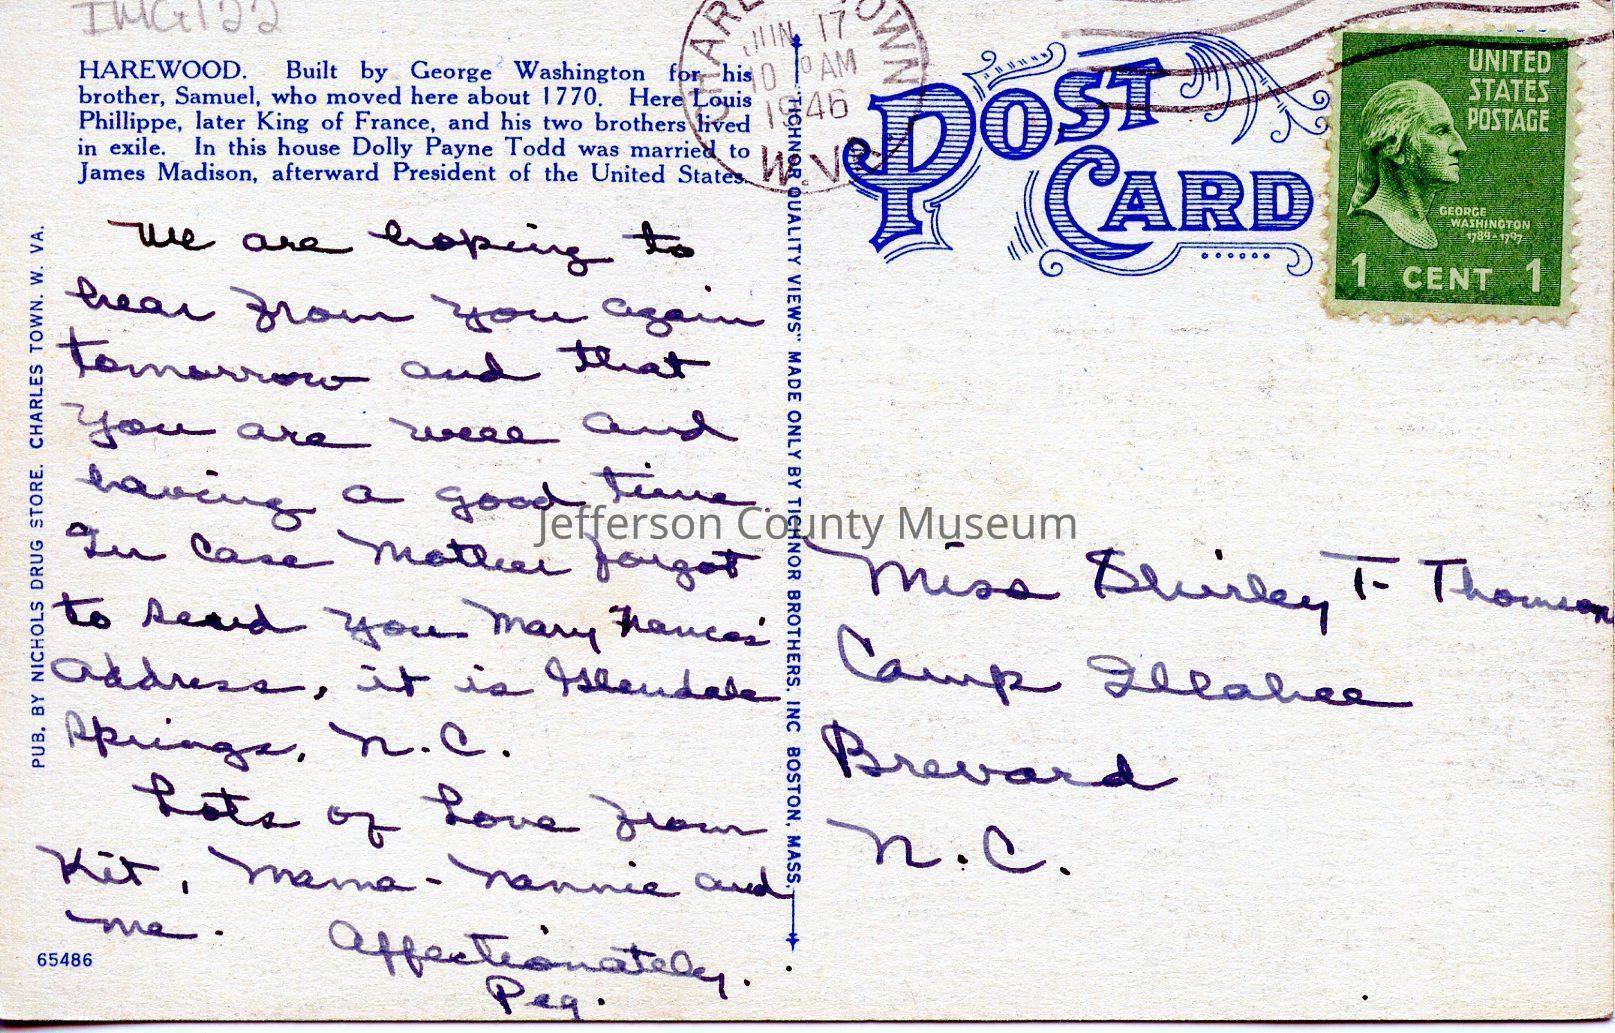 IMG122
HAREWOOD. Built by George Washington for his
brother, Samuel, who moved here about 1770. Here Louis
Phillippe, later King of France, and his two brothers lived
in exile. In this house Dolly Payne Todd was married to
James Madison, afterward President of the United States.
We are hoping to
hear from you again
tomorrow and that
you are well and
having a good time.
In case Mother forgot
to send you Mary Frances'
address, it is Glendale
Springs, N.C.
Lots of Love from
Kit, Mama-Nannie and
me.
Affectionately,
Peg.
65486
PUB. BY NICHOLS DRUG STORE. CHARLES TOWN. W. VA.
"TICHNOR QUALITY VIEWS" MADE ONLY BY TICHNOR BROTHERS, INC BOSTON, MASS.
CHARLES TOWN
JUN 17
10 AM
1946
W.VA.
POST
CARD
UNITED
STATES
POSTAGE
GEORGE
WASHINGTON
1789-1797
1 CENT 1
Miss Shirley T. Thomson
Camp Illahee
Brevard
N.C.
Jefferson County Museum